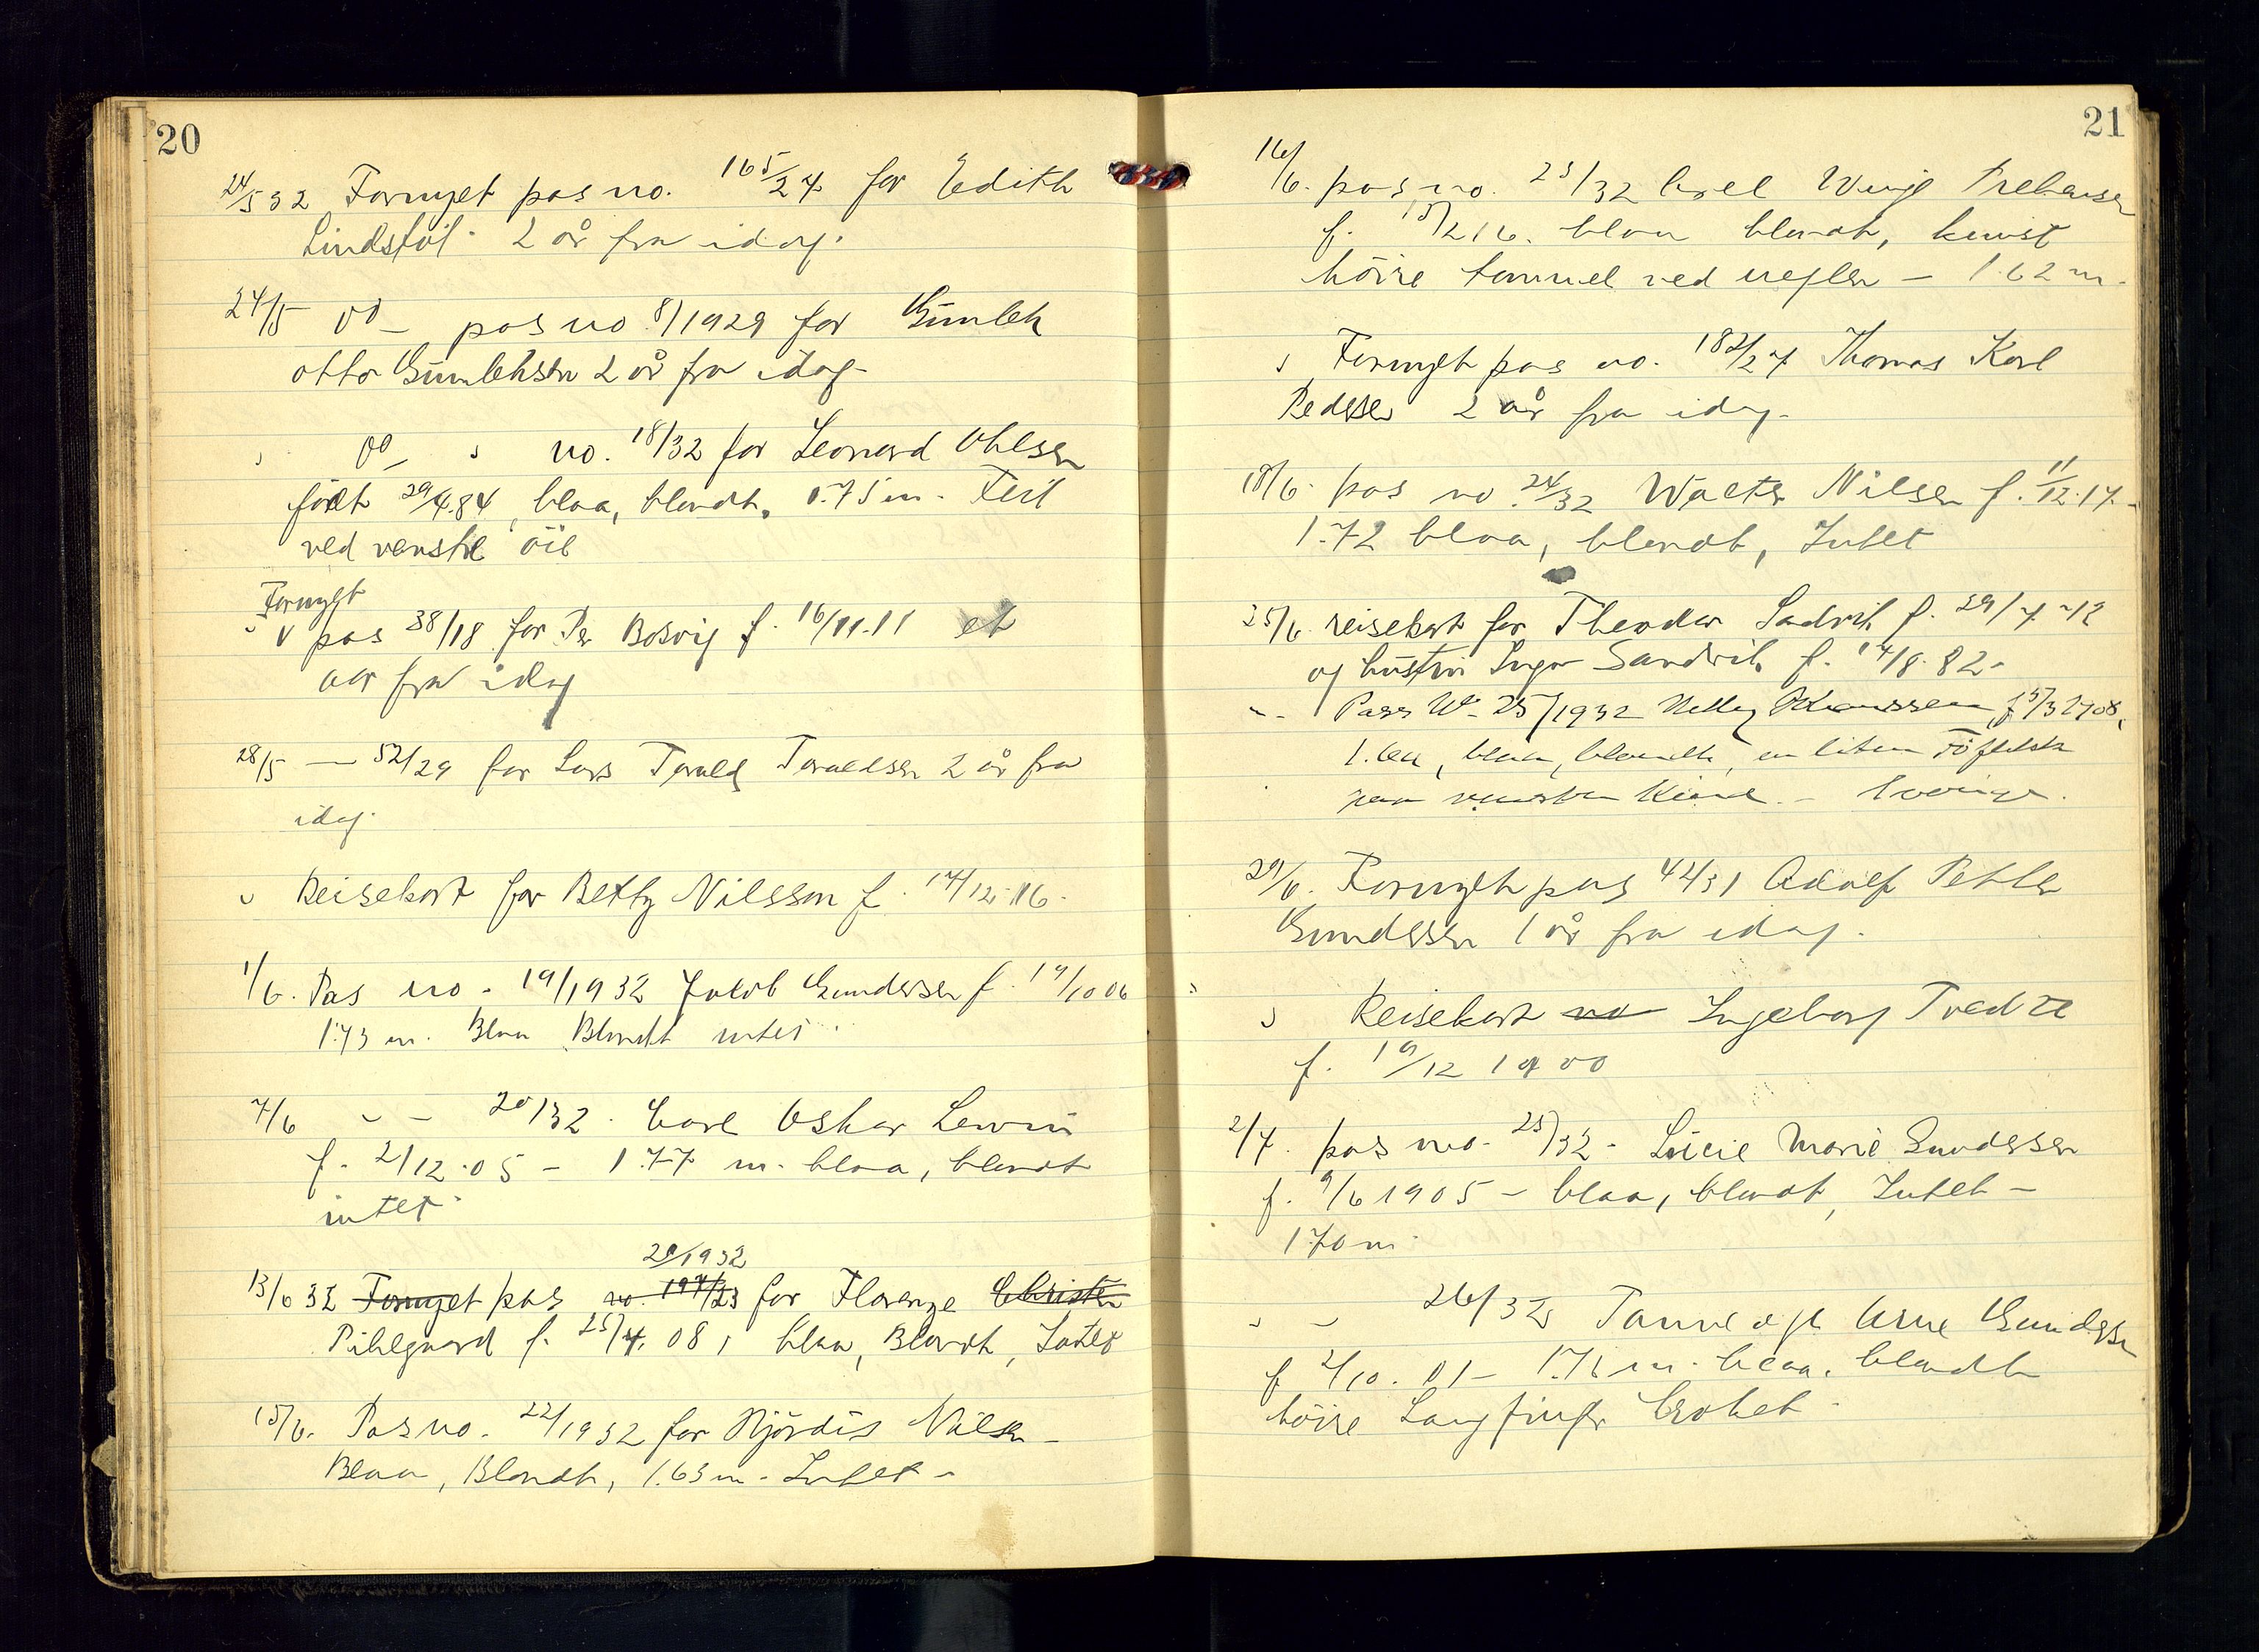 20
24/5 32 Fornyet pas no. 165/27 for Edith
Lindstøl. 2 år fra idag.
24/5 do – pas no 8/1929 for Gunleh
otto Gunlehsen 2 år fra idag.
" do – " no. 18/32 for Leonard Ohlsen
født 29/4.84, blaa, blondt, 1.75 m.
ved venstre öie
Fornyet
" pas 38/18 for Per Bosvig f. 16/11.11 et
aar fra idag
28/5 — 52/29 for Lars Torald Toraldsen 2 år fra
idag.
" Reisekort for Betty Nilsson f. 17/12.16.
1/6. Pas no. 19/1932 Jakob Gundersen f. 19/10 06
1.73 m. Blaa Blondt intet.
7/6 " – 20/32. Carl Oskar Lewin
f. 2/12.05 – 1.77 m. blaa, blondt
intet.
21/1932
13/6 32 Fornyet pas no. 197/23 for Florenze Christen
Pihlgaard f. 25/4. 08, blaa, Blondt, Intet
15/6. Pas no. 22/1932 for Hjördis Nilsen –
Blaa, Blondt, 1.63 m. Intet –
21
16/6. pas no. 23/32
f. 15/2 16. blaa blondt,
höire tommel ved neglen – 1.62 m.
" Fornyet pas no. 182/27 Thomas Karl
Pedersen 2 år fra idag.
18/6. pas no. 24/32 Walter Nilsen f. 11/12.17 –
1.72 blaa, blondt, Intet
25/6. reisekort for Theodor Sandvik f. 29/7 72
og hustru Inga Sandvik f. 14/8.82 –
" – Pass No 25/1932 f 5/3 1908,
blaa, blondt, en liten
paa venstre Kind. –
29/6. Fornyet pas 42/31 Adolf Petter
Gundersen 1 år fra idag.
" Reisekort no Ingeborg Tvedte
f. 19/12 1900
2/7. pas no. 25/32. Lucie Marie Gundersen
f. 9/6 1905 – blaa, blondt, Intet –
1.70 m.
" – 26/32 Arne Gundersen
f 2/10. 01 – 1.76 m. blaa, blondt
höire Langfinger kroket.